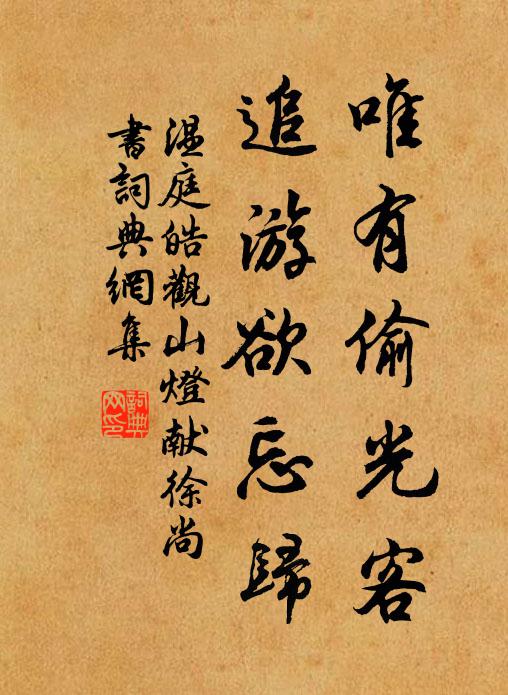 唯有偷光客
追游欲忘歸
温庭皓觀山燈献徐尚
書詞典網集
詞典网印